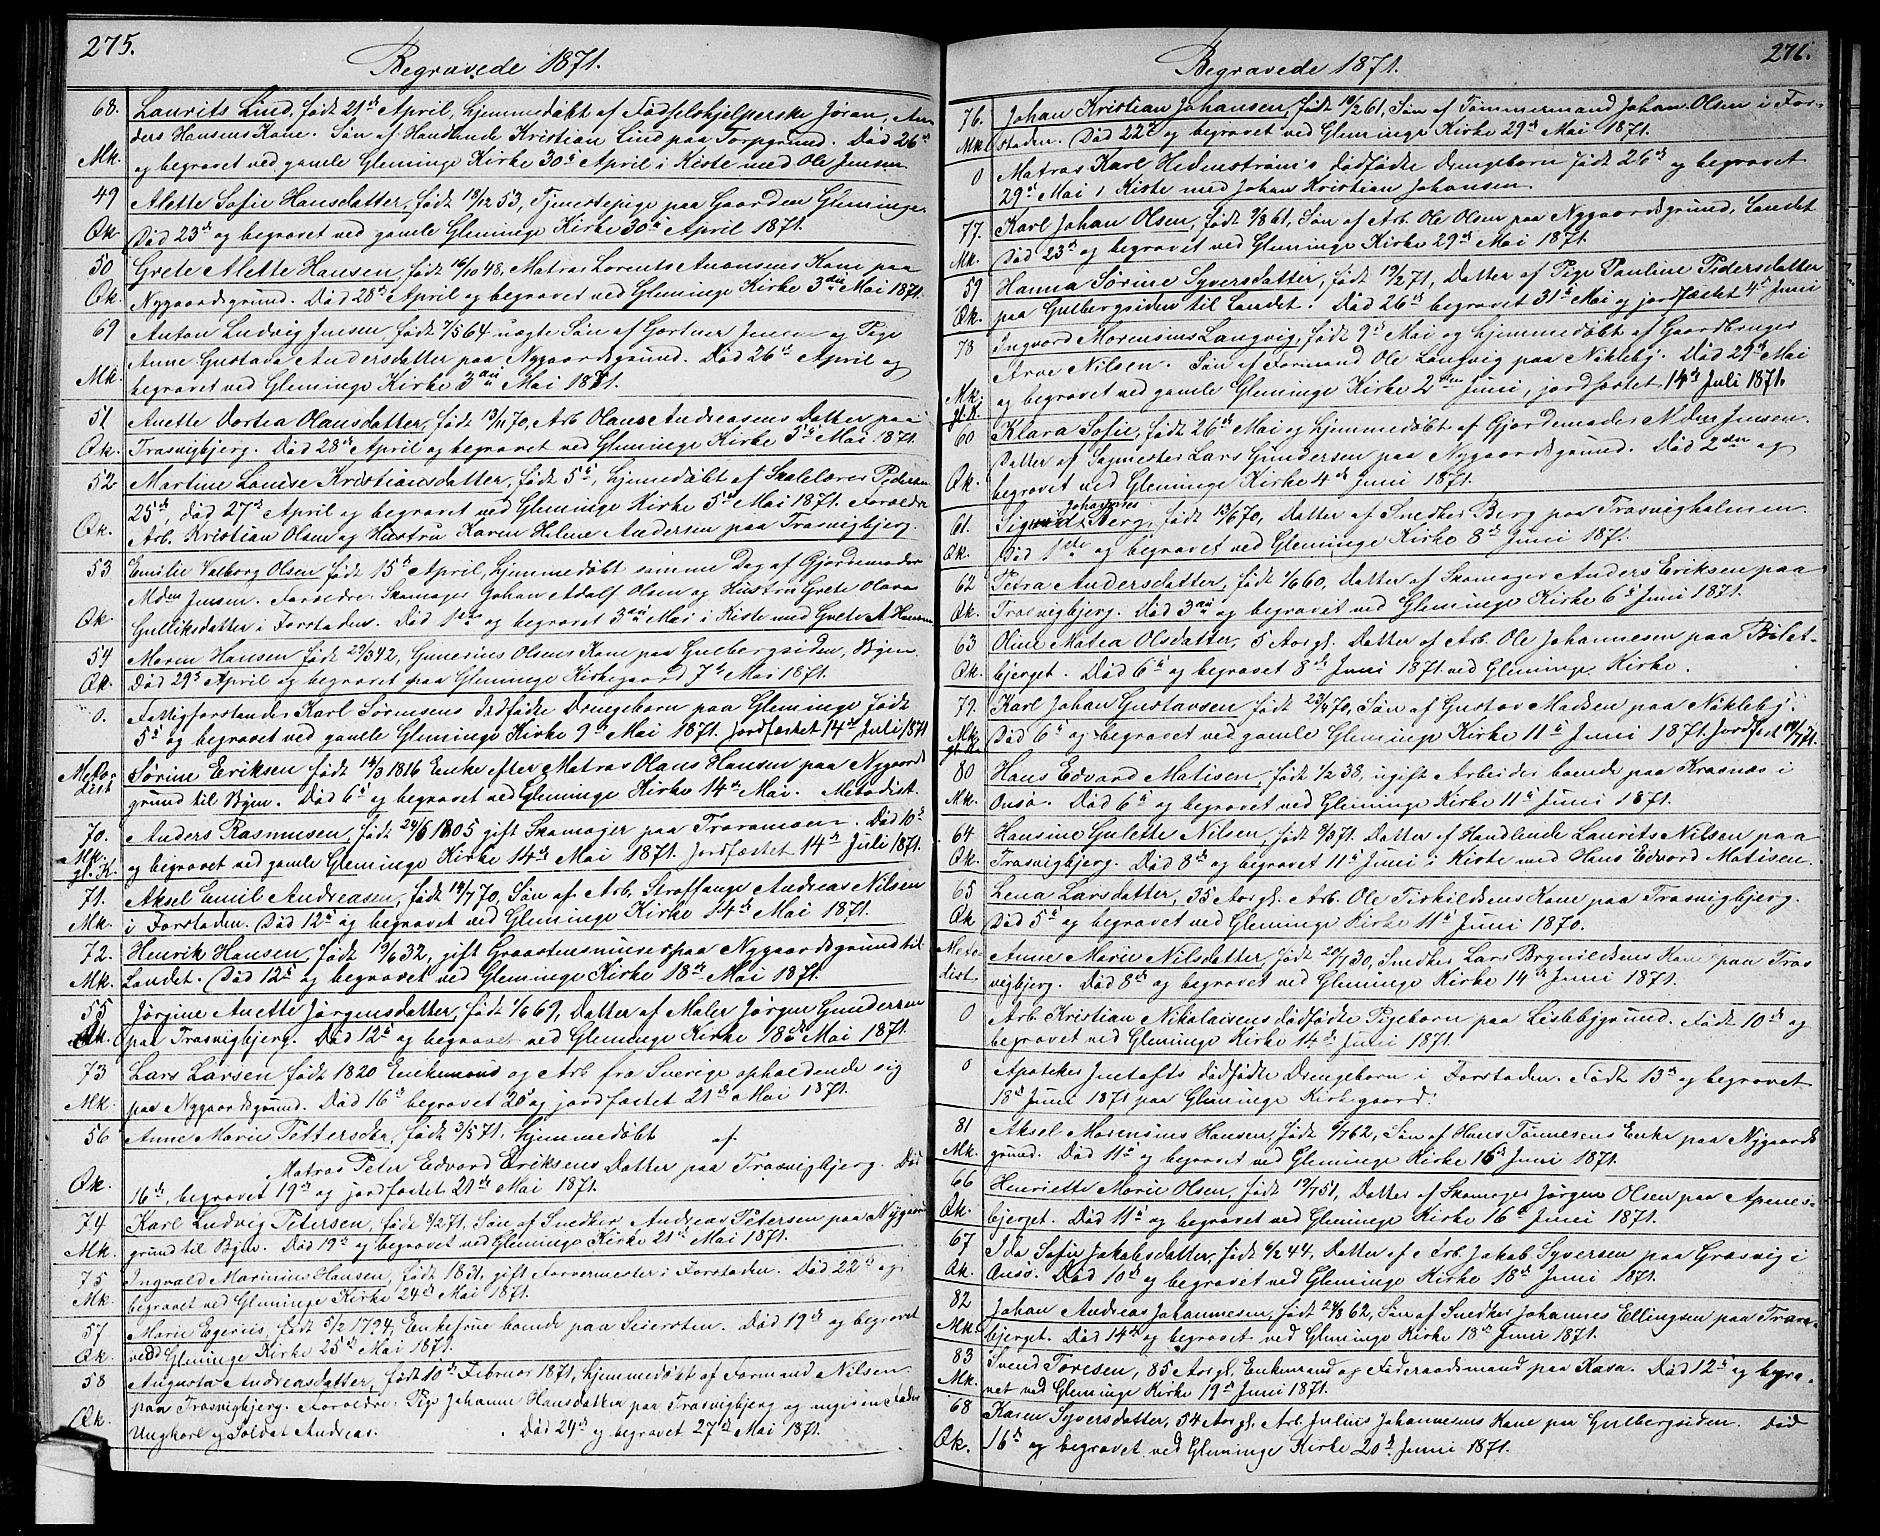 275.
Begravede 1871.
68. Laurits Lind, født 21de April, hjemmedøbt af Fødselshjelperske Jøran, An-
ders Hansens Kone. Søn af Handlende Kristian Lind paa Torpgrund. Død 26de
Mk. og begravet ved gamle Gleminge Kirke 30te April i Kiste med Ole Jensen
49 Alette Sofie Hansdatter, født 18/12 53, Tjenestepige paa Gaarden Gleminge.
Qk. Død 23de og begravet ved gamle Gleminge Kirke 30te April 1871.
50 Grete Alette Hansen, født 16/10 48, Matros Lorents Anonsens Kone paa
Qk. Nygaardsgrund. Død 28de April og begravet ved Gleminge Kirke 3die Mai 1871.
69 Anton Ludvig Jensen, født 7/5 64 uægte Søn af Gartner Jensen og Pige
Anne Gustava Andersdatter paa Nygaardsgrund. Død 26de April og
Mk. begravet ved Gleminge Kirke 3die Mai 1871.
51 Anette Dortea Olausdatter, født 13/11 70, Arb. Olaus Andreasens Datter paa
Qk. Trosvigbjerg. Død 28de April og begravet ved Gleminge Kirke 5te Mai 1871.
52 Martine Louise Kristiansdatter, født 5te, hjemmedøbt af Skolelærer Pedersen
25de, død 27de April og begravet ved Gleminge Kirke 5te Mai 1871. Forældre
Qk. Arb. Kristian Olsen og Hustru Karen Helene Andersen paa Trosvigbjerg.
53 Emilie Valborg Olsen født 15de April, hjemmedøbt samme Dag af Gjordemoder
Mden Jensen. Forældre: Skomager Johan Adolf Olsen og Hustru Grete Olava
Qk. Gulliksdatter i Forstaden. Død 1ste og begravet 3die Mai i Kiste med Grete A Hansen
54 Maren Hansen født 29/3 42, Gunerius Olsens Kone paa Gulbergsiden, Byen.
Qk. Død 29de April og begravet paa Gleminge Kirkegaard 7de Mai 1871.
0. Fattigforstander Karl Sørensens dødfødte Drengebarn paa Gleminge født
5te og begravet ved gamle Gleminge Kirke 9de Mai 1871. Jordfæstet 14de Juli 1871
Metodist Sørine Eriksen født 14/3 1816 Enke efter Matros Olaus Hansen paa Nygaards
grund til Byen. Død 6te og begravet ved Gleminge Kirke 14de Mai. Metodist.
70. Anders Rasmusen, født 24/6 1805 gift Skomager paa Traramoen. Død 10de
Mk. gl. K. og begravet ved gamle Gleminge Kirke 14de Mai 1871. Jordfæstet 14de Juli 1871.
71. Aksel Emil Andreasen, født 14/7 70, Søn af Arb. Straffange Andreas Nilsen
Mk. i Forstaden. Død 12te og begravet ved Gleminge Kirke 14de Mai 1871.
72. Henrik Hansen, født 19/6 32, gift Graastensmurer paa Nygaardsgrund til
Mk. Landet. Død 12te og begravet ved Gleminge Kirke 18de Mai 1871.
55 Jørgine Anette Jørgensdatter, født 1/6 69, Datter af Maler Jørgen Gundersen
Qk. paa Trosvigbjerg. Død 12te og begravet ved Gleminge Kirke 18de Mai 1871.
73 Lars Larsen født 1820 Enkemand og Arb. fra Sverige opholdende sig
Mk. paa Nygaardsgrund. Død 16de begravet 20 og jordfæstet 21de Mai 1871.
56 Anne Marie Pettersdtr, født 3/5 71. Hjemmedøbt af
Matros Peter Edvard Eriksens Datter paa Trosvigbjerg. Død
Qk. 16de, begravet 19de og jordfæstet 21de Mai 1871.
74 Karl Ludvig Petersen, født 9/2 71, Søn af Snedker Andreas Petersen paa Nygaards
Mk. grund til Byen. Død 19de og begravet ved Gleminge Kirke 21de Mai 1871.
75 Ingvald Marinius Hansen, født 1831, gift Farvermester i Forstaden. Død 22de og
Mk. begravet ved Gleminge Kirke 24de Mai 1871.
57 Marie Egeriis, født 5/2 1794, Enkefrue boende paa Seiersten. Død 19de og begravet
Qk. ved Gleminge Kirke 25de Mai 1871.
58 Augusta Andreasdatter, født 10de Februar 1871, hjemmedøbt af Formand Nilsen
paa Trosvigbjerg. Forældre: Pige Johanne Hansdatter paa Trosvigbjerg og angiven Fader
Qk. Ungkarl og Soldat Andreas. Død 24de og begravet 27de Mai 1871.
276.
Begravede 1871.
76. Johan Kristian Johansen, født 10/2 61, Søn af Tømmermand Johan Olsen i For-
Mk. staden. Død 22de og begravet ved Gleminge Kirke 29de Mai 1871.
0 Matros Karl Hedenstrøm's dødfødte Drengebarn født 26de og begravet
29de Mai i Kiste med Johan Kristian Johansen.
77. Karl Johan Olsen, født 9/8 61, Søn af Arb. Ole Olsen paa Nygaardsgrund, Landet
Mk. Død 23de og begravet ved Gleminge Kirke 29de Mai 1871.
59 Hanna Sørine Syversdatter, født 19/2 71, Datter af Pige Pauline Pedersdatter
Qk. paa Gulbergsiden til Landet. Død 26de begravet 31te Mai og jordfæstet 4de Juni
78 Ingvard Morensius Langvig, født 9de Mai og hjemmedøbt af Gaardbruger
Arve Nilsen. Søn af Formand Ole Langvig paa Nikleby. Død 29de Mai
Mk. gl. K. og begravet ved gamle Gleminge Kirke 2den Juni, jordfæstet 14de Juli 1871.
60 Klara Sofie, født 26de Mai og hjemmedøbt af Gjordemoder Mden Jensen.
Datter af Sagmester Lars Gundersen paa Nygaardsgrund. Død 2den og
Qk. begravet ved Gleminge Kirke 4de Juni 1871.
Johannes
61. Signe Berg, født 13/6 70, Datter af Snedker Berg paa Trosvigholmen.
Qk. Død 1ste og begravet ved Gleminge Kirke 8de Juni 1871.
62 Petra Andersdatter, født 1/6 60, Datter af Skomager Anders Eriksen paa
Qk. Trosvigbjerg. Død 3die og begravet ved Gleminge Kirke 6te Juni 1871.
63 Oline Matea Olsdatter, 5 Aar gl. Datter af Arb. Ole Johannesen paa Bolet-
Qk. bjerget. Død 6te og begravet 8de Juni 1871 ved Gleminge Kirke.
79. Karl Johan Gustavsen født 23/4 70, Søn af Gustav Madsen paa Nikleby.
Mk. gl. K. Død 6te og begravet ved gamle Gleminge Kirke 11te Juni 1871. Jordfæst 14/7 71.
80 Hans Edvard Matisen, født 1/2 38, ugift Arbeider boende paa Krosnæs i
Mk. Onsø. Død 6te og begravet ved Gleminge Kirke 11te Juni 1871.
64 Hansine Gulette Nilsen, født 9/3 71. Datter af Handlende Laurits Nilsen paa
Qk. Trosvigbjerg. Død 8de og begravet 11te Juni i Kiste med Hans Edvard Matisen.
65 Lena Larsdatter, 35 Aar gl. Arb. Ole Terkildsens Kone paa Trosvigbjerg.
Qk Død 5te og begravet ved Gleminge Kirke 11te Juni 1870.
Metodist Anne Marie Nilsdatter, født 20/7 30, Snedker Lars Brynildsens Kone paa Tros
vigbjerg. Død 8de og begravet ved Gleminge Kirke 14de Juni 1871.
0 Arb. Kristian Nikolaisens dødfødte Pigebarn paa Lislebygrund. Født 10de og
begravet ved Gleminge Kirke 14de Juni 1871.
0 Apoteker Jentofts dødfødte Drengebarn i Forstaden. Født 13de og begravet
18de Juni 1871 paa Gleminge Kirkegaard.
81 Aksel Morensius Hansen, født 9/7 62, Søn af Hans Tønnesens Enke paa Nygaards
Mk. grund. Død 11te og begravet ved Gleminge Kirke 16de Juni 1871.
66 Henriette Marie Olsen, født 19/7 51, Datter af Skomager Jørgen Olsen paa Apenes-
Qk. bjerget. Død 11te og begravet ved Gleminge Kirke 16de Juni 1871.
67 Ida Sofie Jakobsdatter, født 6/2 44, Datter af Arb. Jakob Syversen paa Græsvig i
Qk. Onsø. Død 10de og begravet ved Gleminge Kirke 18de Juni 1871.
82 Johan Andreas Johannesen, født 24/8 62, Søn af Snedker Johannes Ellingsen paa Trara-
Mk. bjerget. Død 14de og begravet ved Gleminge Kirke 18de Juni 1871.
83 Svend Toresen, 85 Aar gl. Enkemand og Føderaadsmand paa Kasa. Død 12te og begra-
Mk. vet ved Gleminge Kirke 19de Juni 1871.
68 Karen Syversdatter, 54 Aar gl. Arb. Julius Johannesens Kone paa Gulbergsiden. Død
Qk. 16de og begravet ved Gleminge Kirke 20de Juni 1871.